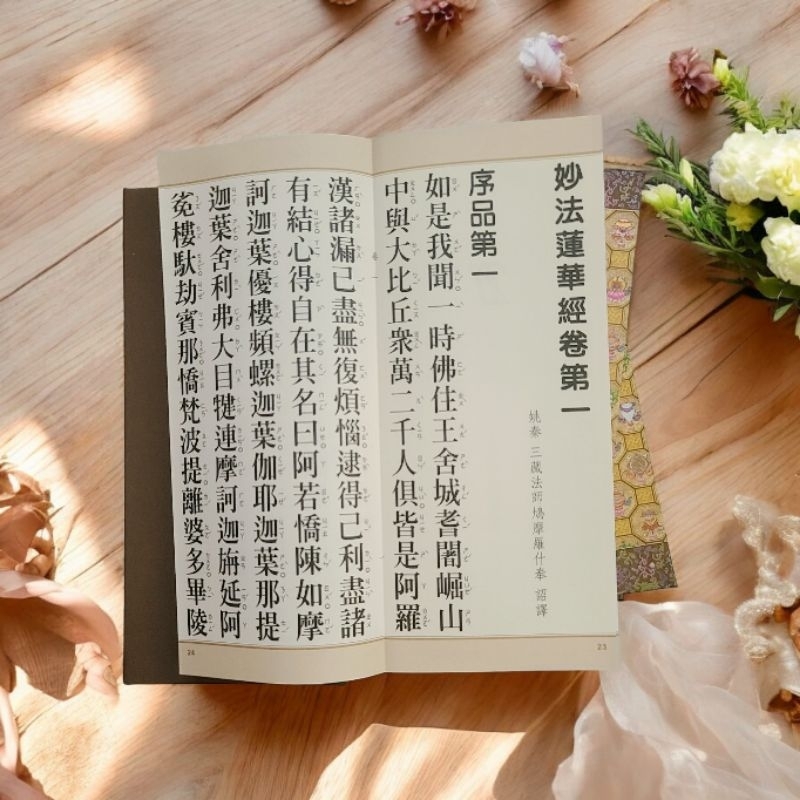 妙法蓮華經卷第一
姚秦 三藏法師鳩摩羅什奉 詔譯
序品第一
如是我聞一時佛住王舍城耆闍崛山
中與大比丘眾萬二千人俱皆是阿羅
23
漢諸漏已盡無復煩惱逮得己利盡諸
有結心得自在其名曰阿若憍陳如摩
訶迦葉優樓頻螺迦葉伽耶迦葉那提
迦葉舍利弗大目犍連摩訶迦旃延阿
㝹樓馱劫賓那憍梵波提離婆多畢陵
24